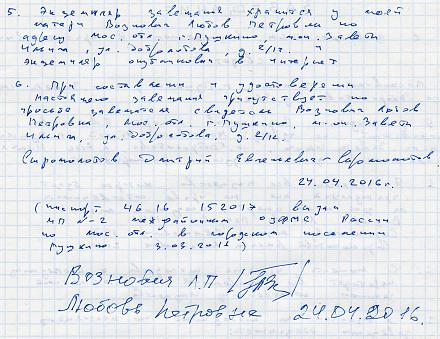 5. Экземпляр завещания хранится у моей
матери Вознобия Любовь Петровны по
адресу мос. отл. г. Пушкино, м-он. Заветы
Ильича, ул. Добролюбова, д. 2/12. и
экземпляр опубликован в интернет
6. При составлении и удостоверении
настоящего завещания присутствует по
просьбе завещателя свидетель Вознобия Любовь
Петровна, мос. отл. г. Пушкино, м-он. Заветы
Ильича, ул. Добролюбова, д. 2/12.
Сыромолотов Дмитрий Евгеньевич - Сыромолотов
24.04.2016 г.
(паспорт 46 16 152017 выдан
МП №-2 межрайонный ОУФМС России
по мос. отл. в городском поселении
Пушкино 3.03.)
Вознобия Л.П
Любовь Петровна 24.04.2016.